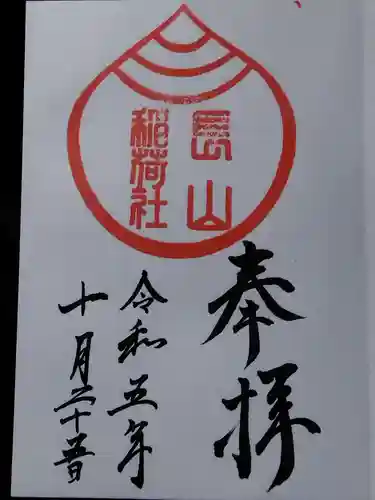 奉拝
長山
稲荷社
令和五年
十月二十五日